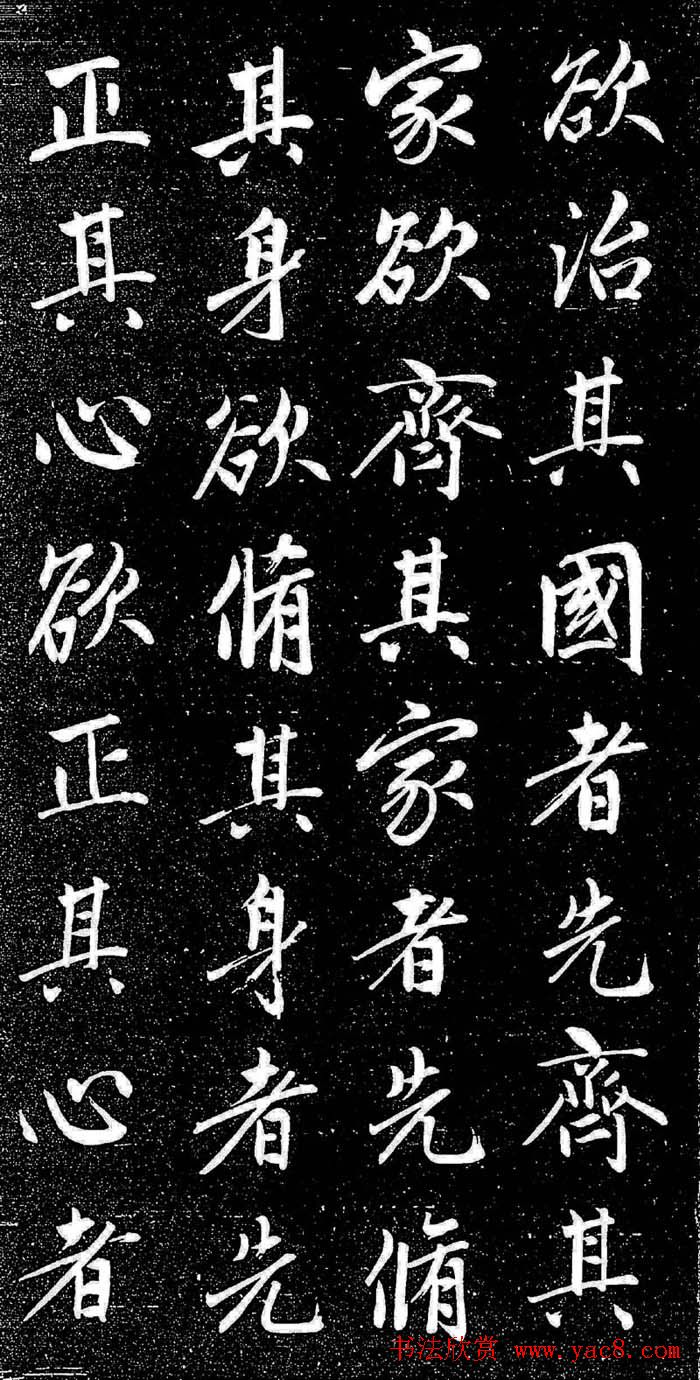 欲治其國者先齊其
家欲齊其家者先脩
其身欲脩其身者先
正其心欲正其心者
书法欣赏 www.yac8.com